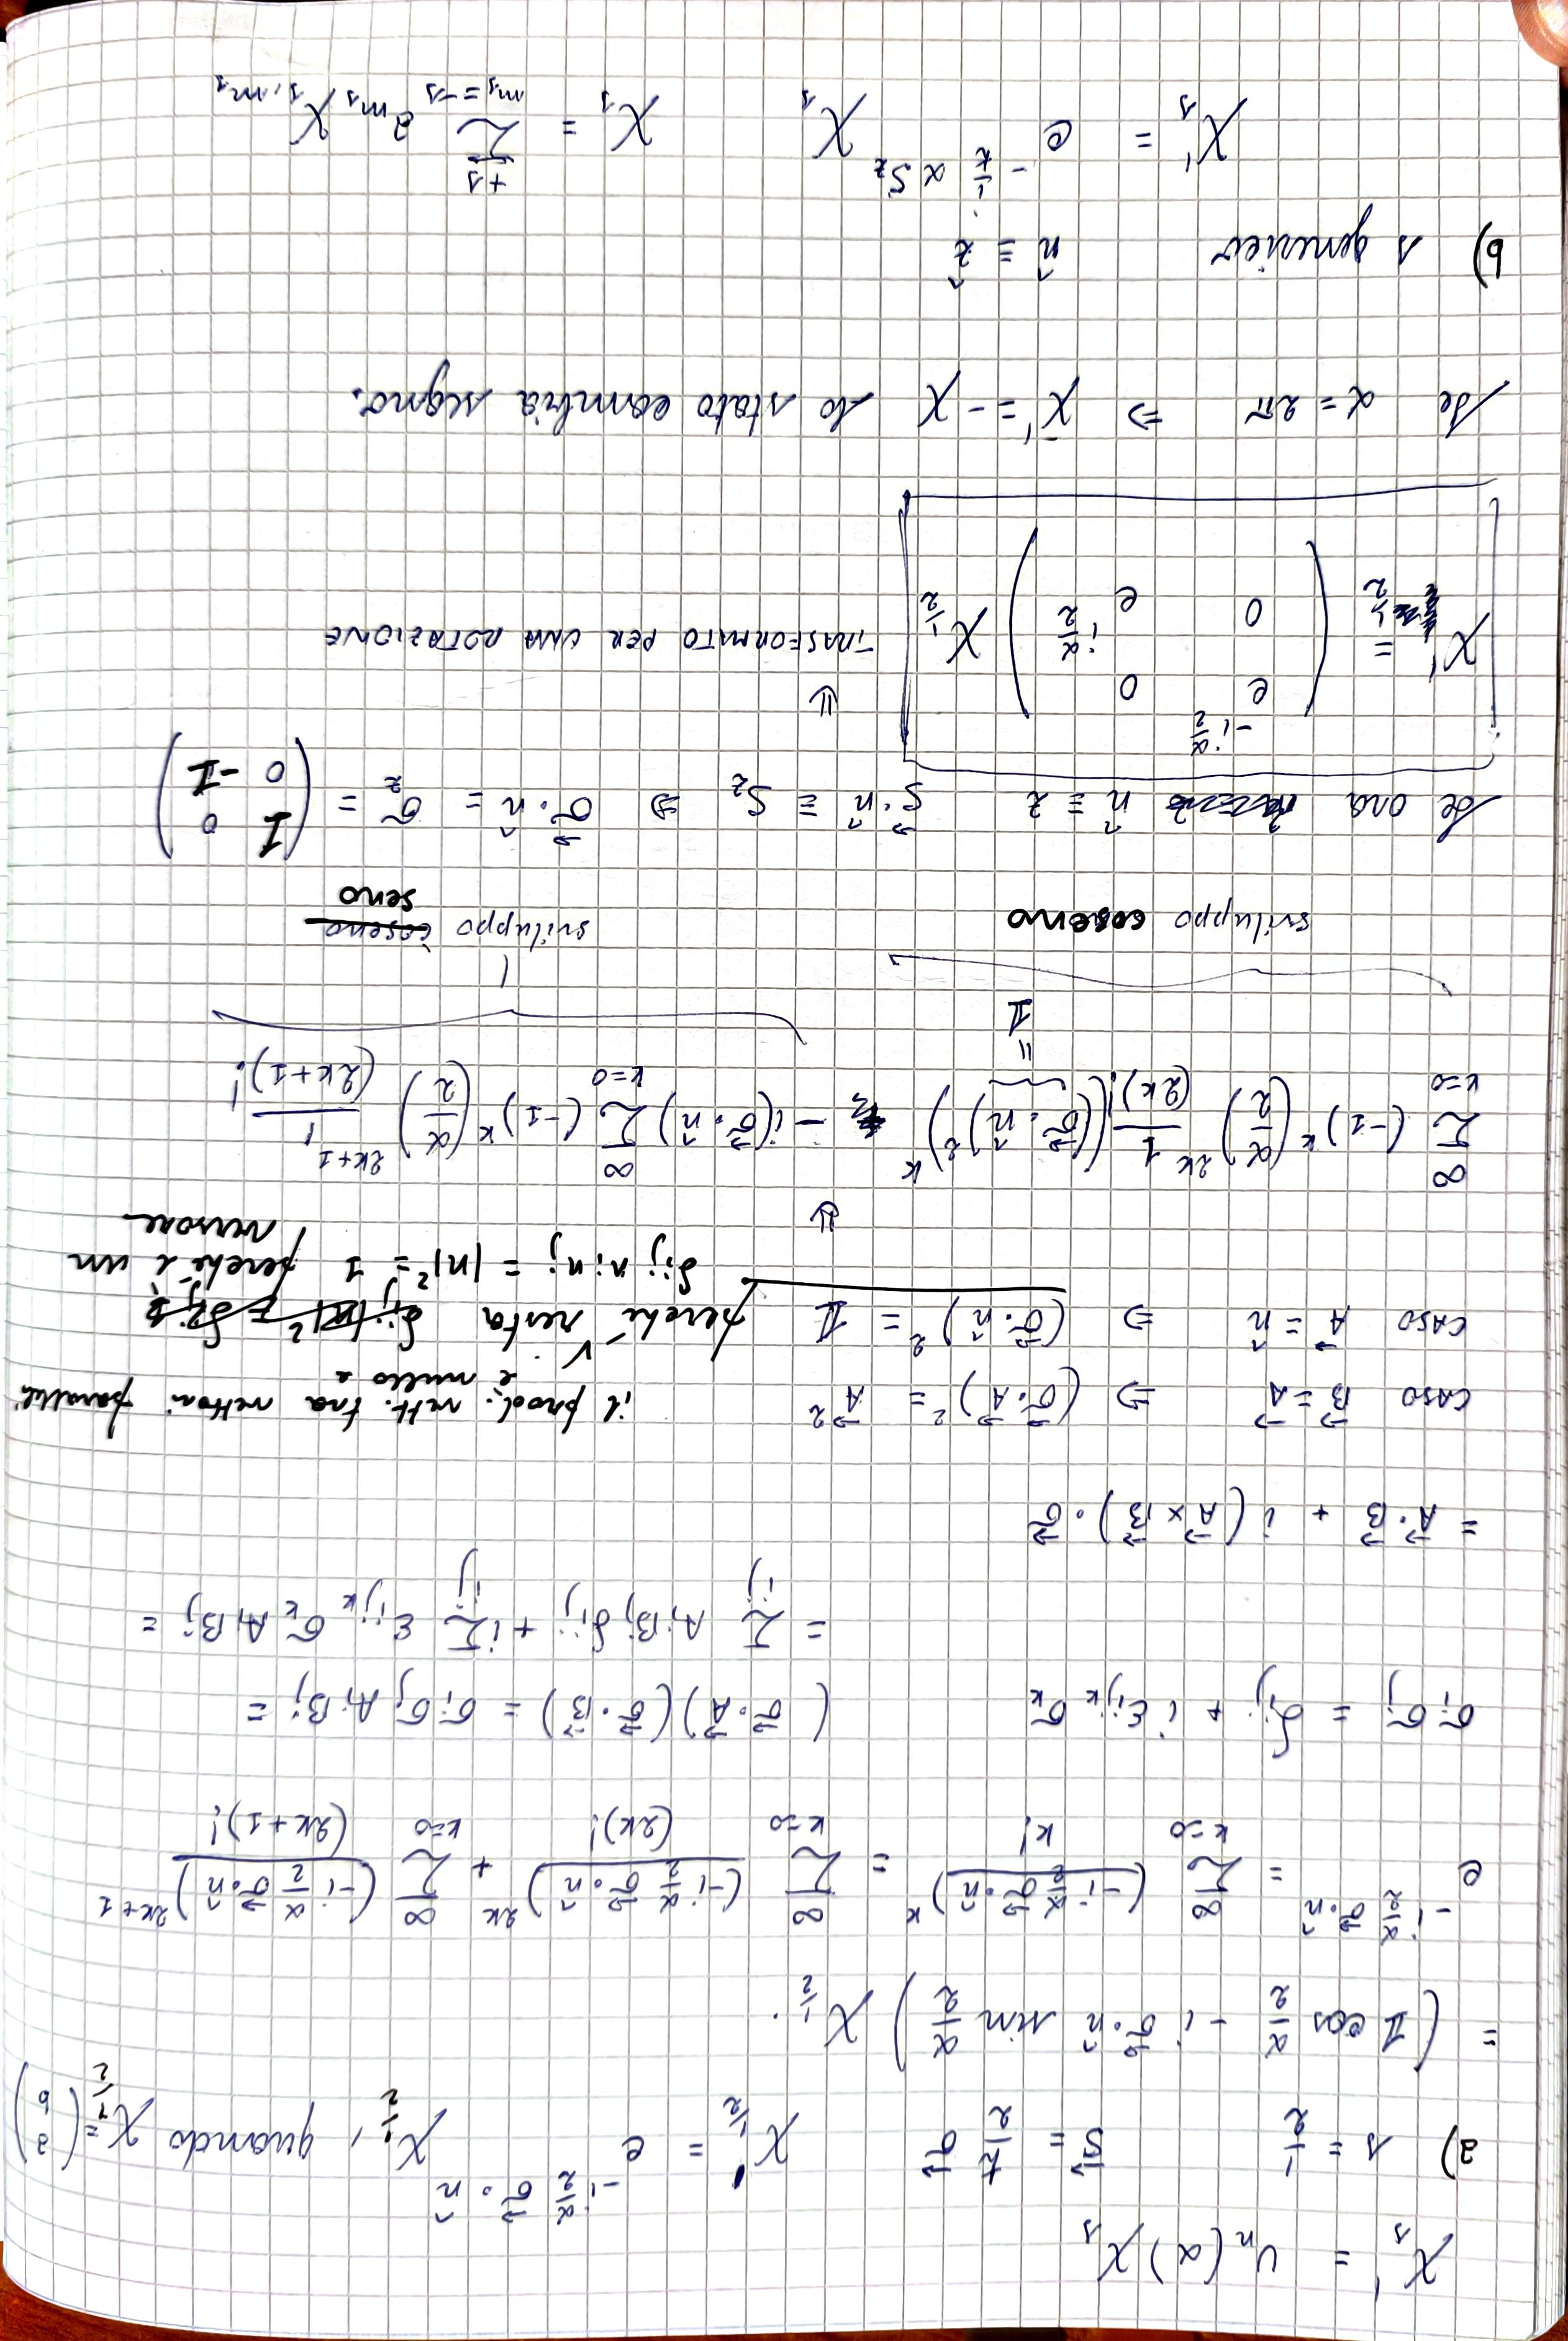 χ'_s = U_n(α) χ_s
a) s = 1/2   S⃗ = ħ/2 σ⃗   χ'_{1/2} = e^{-i α/2 σ⃗·n̂} χ_{1/2}, quando χ_{1/2} = (a b)
= (1 cos α/2 - i σ⃗·n̂ sin α/2) χ_{1/2}.
e^{-i α/2 σ⃗·n̂} = Σ_{k=0}^{∞} (-i α/2 σ⃗·n̂)^k / k! = Σ_{k=0}^{∞} (-i α/2 σ⃗·n̂)^{2k} / (2k)! + Σ_{k=0}^{∞} (-i α/2 σ⃗·n̂)^{2k+1} / (2k+1)!
σ_i σ_j = δ_ij + i ε_ijk σ_k   (σ⃗·A⃗)(σ⃗·B⃗) = σ_i σ_j A_i B_j =
= Σ_{ij} A_i B_j δ_ij + i Σ_{ij} ε_ijk σ_k A_i B_j =
= A⃗·B⃗ + i (A⃗×B⃗)·σ⃗
CASO B⃗ = A⃗ ⇒ (σ⃗·A⃗)² = A⃗²   il prod. vett. fra vettori paralleli
è nullo e
CASO A⃗ = n̂ ⇒ (σ⃗·n̂)² = 𝟙   perché resta
δ_ij n_i n_j = |n|² = 1 perché è un
versore
⇓
Σ_{k=0}^{∞} (-1)^k (α/2)^{2k} 1/(2k)! ((σ⃗·n̂)²)^k - i(σ⃗·n̂) Σ_{k=0}^{∞} (-1)^k (α/2)^{2k+1} 1/(2k+1)!
= 𝟙
sviluppo coseno   sviluppo coseno
seno
Se ora n̂ ≡ z   S⃗·n̂ ≡ S_z ⇒ σ⃗·n̂ = σ_z = (1 0 0 -1)
⇓
χ'_{1/2} = (e^{-i α/2} 0 0 e^{i α/2}) χ_{1/2}   TRASFORMATO PER UNA ROTAZIONE
Se α = 2π ⇒ χ' = -χ   lo stato cambia segno.
b) s generico   n̂ ≡ ẑ
χ'_s = e^{-i/ħ α S_z} χ_s   χ_s = Σ_{m_s=-s}^{+s} a_{m_s} χ_{s,m_s}